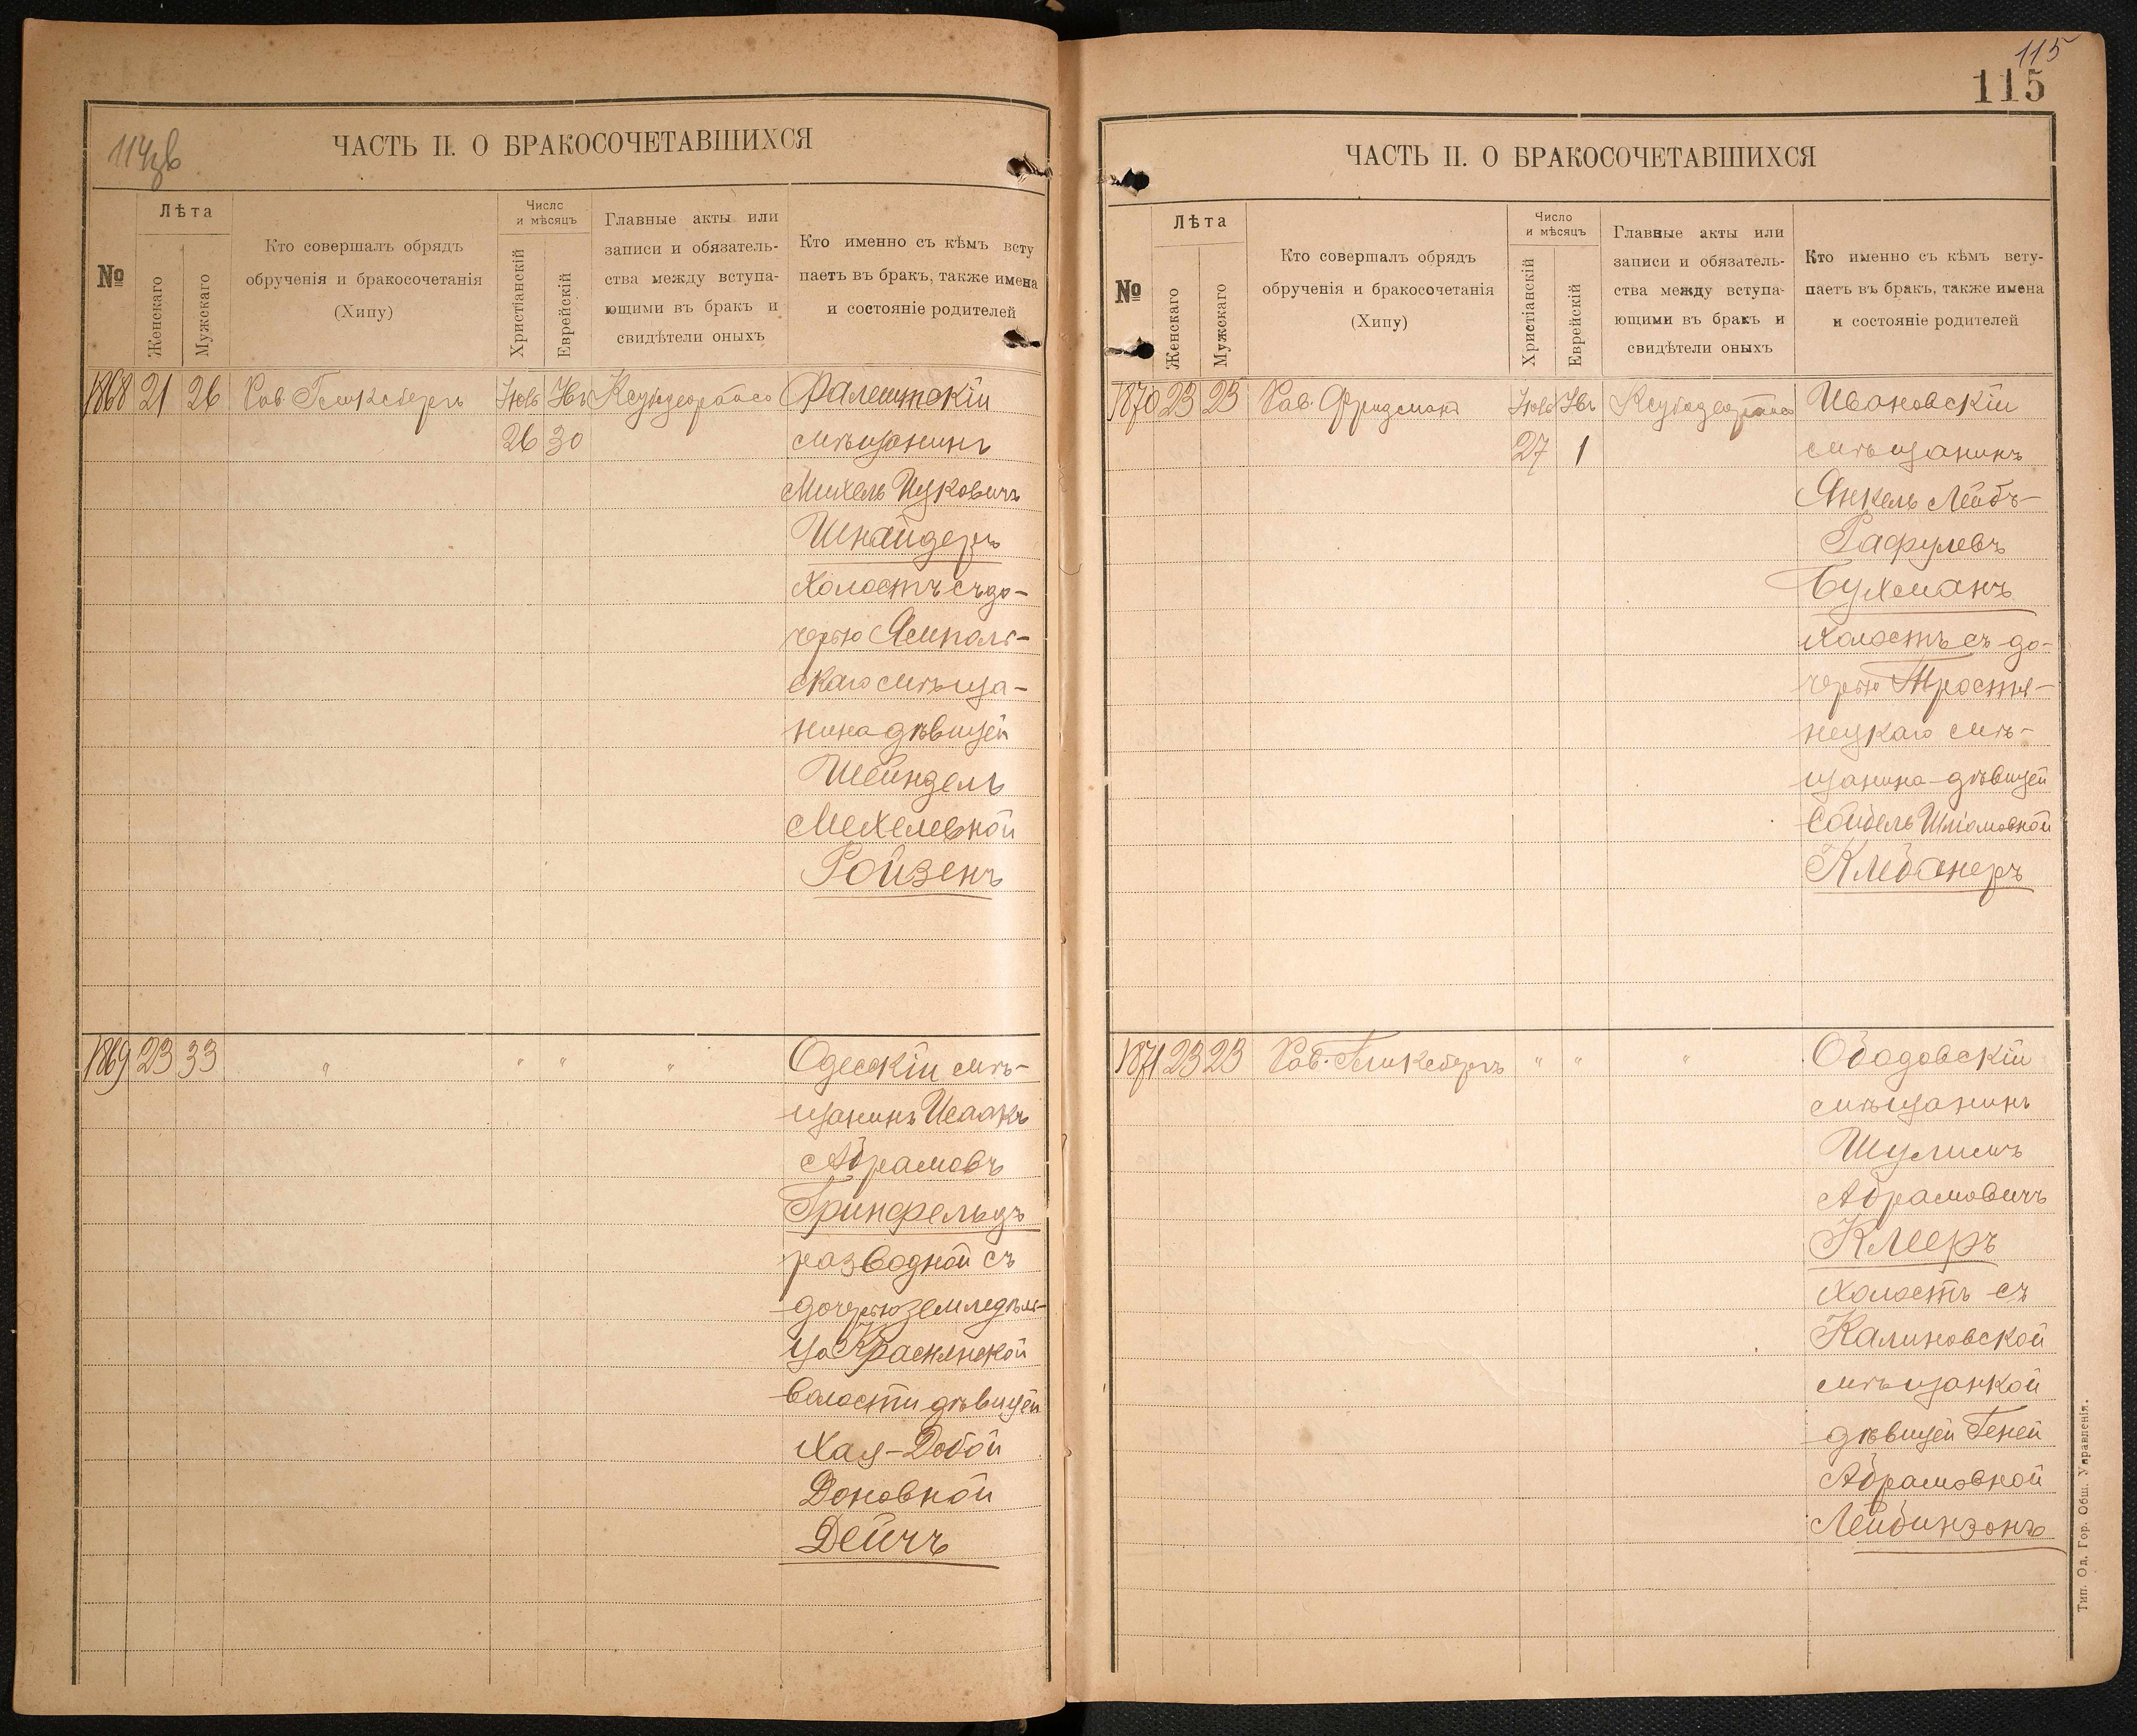 114 об
ЧАСТЬ II. О БРАКОСОЧЕТАВШИХСЯ
№
Лѣта
Женскаго
Мужскаго
Кто совершалъ обрядъ
обрученія и бракосочетанія
(Хипу)
Число
и мѣсяцъ
Христіанскій
Еврейскій
Главные акты или
записи и обязатель-
ства между вступа-
ющими въ бракъ и
свидѣтели оныхъ
Кто именно съ кѣмъ всту
паетъ въ бракъ, также имена
и состояніе родителей
1868 21 26 Рав. Гликсбергъ Фалештскій
26 30 мѣщанинъ
Михель Ицковичъ
Шнайдеръ
холостъ съ до-
черью Ямполь-
скаго мѣща-
нина дѣвицей
Шейндель
Мехелевной
Ройзенъ
1869 23 33 " " " " Одесскій мѣ-
щанинъ Исаакъ
Абрамовъ
Гринфельдъ
разводной съ
дочерью земледѣль-
ца Краснянской
волости дѣвицей
Хая-Добой
Доновной
Дейчъ
115
115
ЧАСТЬ II. О БРАКОСОЧЕТАВШИХСЯ
№
Лѣта
Женскаго
Мужскаго
Кто совершалъ обрядъ
обрученія и бракосочетанія
(Хипу)
Число
и мѣсяцъ
Христіанскій
Еврейскій
Главные акты или
записи и обязатель-
ства между вступа-
ющими въ бракъ и
свидѣтели оныхъ
Кто именно съ кѣмъ всту-
паетъ въ бракъ, также имена
и состояніе родителей
1870 23 23 Рав. Фридманъ Ивановскій
27 1 мѣщанинъ
Янкель Лейбъ-
Рафулевъ
Бухманъ
холостъ съ до-
черью Тростя-
нецкаго мѣ-
щанина дѣвицей
Шліомовной
Клебанеръ
1871 23 23 Рав. Гликсбергъ " " " Ободовскій
мѣщанинъ
Шулимъ
Абрамовичъ
Клееръ
холостъ съ
Калиновской
мѣщанкой
дѣвицей Геней
Абрамовной
Лейбинзонъ
Тип. Од. Гор. Общ. Управленія.